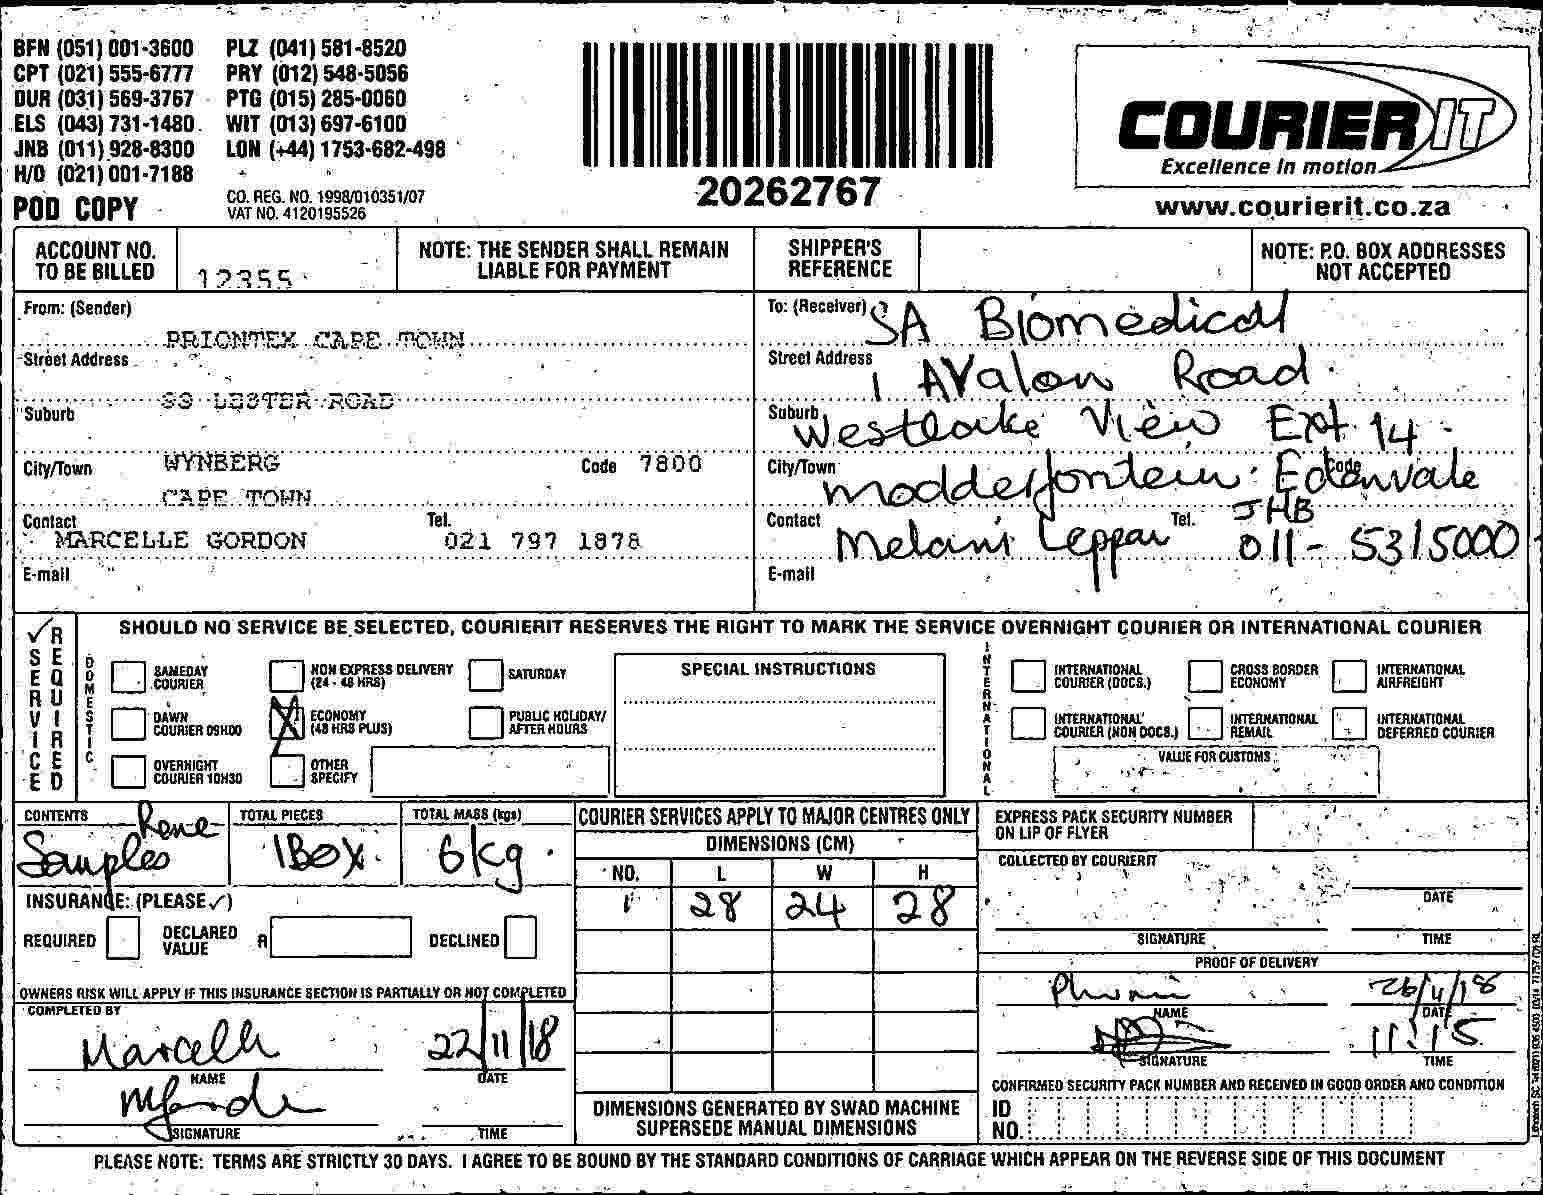 BFN (051) 001-3600 PLZ (041) 581-8520
CPT (021) 555-6777 PRY (012) 548-5056
DUR (031) 569-3767 PTG (015) 285-0060
ELS (043) 731-1480 WIT (013) 697-6100
JNB (011) 928-8300 LON (+44) 1753-682-498
H/O (021) 001-7188
POD COPY
CO. REG. NO. 1998/010351/07
VAT NO. 4120195526
20262767
COURIER IT
Excellence in motion
www.courierit.co.za
ACCOUNT NO. TO BE BILLED 12355
NOTE: THE SENDER SHALL REMAIN LIABLE FOR PAYMENT
SHIPPER'S REFERENCE
NOTE: P.O. BOX ADDRESSES NOT ACCEPTED
From: (Sender)
PRIONTEX CAPE TOWN
Street Address
LESTER ROAD
Suburb
WYNBERG
City/Town Code 7800
CAPE TOWN
Contact Tel.
MARCELLE GORDON 021 797 1878
E-mail
To: (Receiver) SA Biomedical
Street Address 1 Avalon Road
Suburb Westlake View Ext 14
City/Town Modderfontein Edenvale Code
JHB
Contact Melani Leppan Tel. 011-5315000
E-mail
✓ SERVICE REQUIRED
SHOULD NO SERVICE BE SELECTED, COURIERIT RESERVES THE RIGHT TO MARK THE SERVICE OVERNIGHT COURIER OR INTERNATIONAL COURIER
DOMESTIC
SAMEDAY COURIER
NON EXPRESS DELIVERY (24 - 48 HRS)
SATURDAY
DAWN COURIER 09H00
X ECONOMY (48 HRS PLUS)
PUBLIC HOLIDAY/ AFTER HOURS
OVERNIGHT COURIER 10H30
OTHER SPECIFY
SPECIAL INSTRUCTIONS
INTERNATIONAL
INTERNATIONAL COURIER (DOCS.)
CROSS BORDER ECONOMY
INTERNATIONAL AIRFREIGHT
INTERNATIONAL COURIER (NON DOCS.)
INTERNATIONAL REMAIL
INTERNATIONAL DEFERRED COURIER
VALUE FOR CUSTOMS
CONTENTS Rene Samples
TOTAL PIECES 1 Box
TOTAL MASS (kgs) 6kg
INSURANCE: (PLEASE ✓)
REQUIRED DECLARED VALUE R DECLINED
OWNERS RISK WILL APPLY IF THIS INSURANCE SECTION IS PARTIALLY OR NOT COMPLETED
COMPLETED BY
Marcelle 22/11/18
NAME DATE
SIGNATURE TIME
COURIER SERVICES APPLY TO MAJOR CENTRES ONLY
DIMENSIONS (CM)
NO. L W H
1 28 24 28
DIMENSIONS GENERATED BY SWAD MACHINE
SUPERSEDE MANUAL DIMENSIONS
EXPRESS PACK SECURITY NUMBER
ON LIP OF FLYER
COLLECTED BY COURIERIT
DATE
SIGNATURE TIME
PROOF OF DELIVERY
26/11/18
NAME DATE
11:15
SIGNATURE TIME
CONFIRMED SECURITY PACK NUMBER AND RECEIVED IN GOOD ORDER AND CONDITION
ID NO.
PLEASE NOTE: TERMS ARE STRICTLY 30 DAYS. I AGREE TO BE BOUND BY THE STANDARD CONDITIONS OF CARRIAGE WHICH APPEAR ON THE REVERSE SIDE OF THIS DOCUMENT